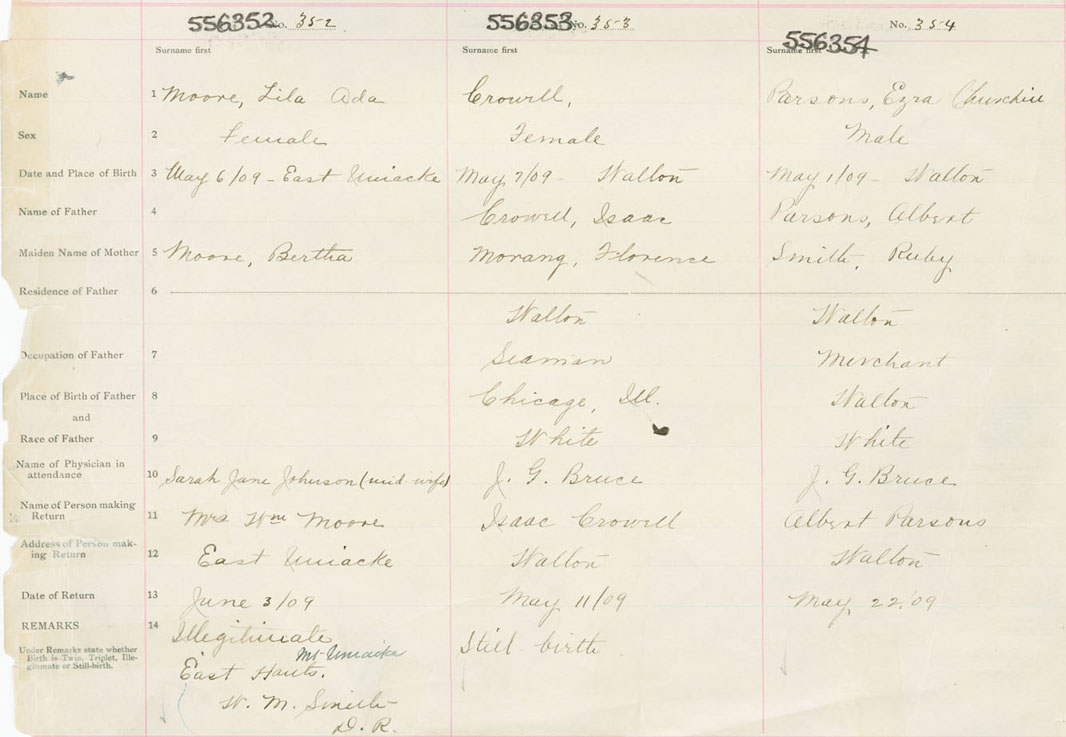 556352 No. 352 556353 No. 353 No. 354
556354
Surname first Surname first Surname first
Name 1 Moore, Lila Ada Crowell, Parsons, Ezra Churchill
Sex 2 Female Female Male
Date and Place of Birth 3 May 6/09 - East Uniacke May 7/09 - Walton May 1/09 - Walton
Name of Father 4 Crowell, Isaac Parsons, Albert
Maiden Name of Mother 5 Moore, Bertha Morang, Florence Smith, Ruby
Residence of Father 6
Walton Walton
Occupation of Father 7 Seaman Merchant
Place of Birth of Father 8 Chicago, Ill. Walton
and
Race of Father 9 White White
Name of Physician in
attendance 10 Sarah Jane Johnson (mid wife) J. G. Bruce J. G. Bruce
Name of Person making
Return 11 Mrs Wm Moore Isaac Crowell Albert Parsons
Address of Person mak-
ing Return 12 East Uniacke Walton Walton
Date of Return 13 June 3/09 May 11/09 May 22/09
REMARKS 14 Illegitimate Still birth
Under Remarks state whether
Birth is Twin, Triplet, Ille-
gitimate or Still-birth.
Mt Uniacke
East Hants.
W. M. Smith
D. R.